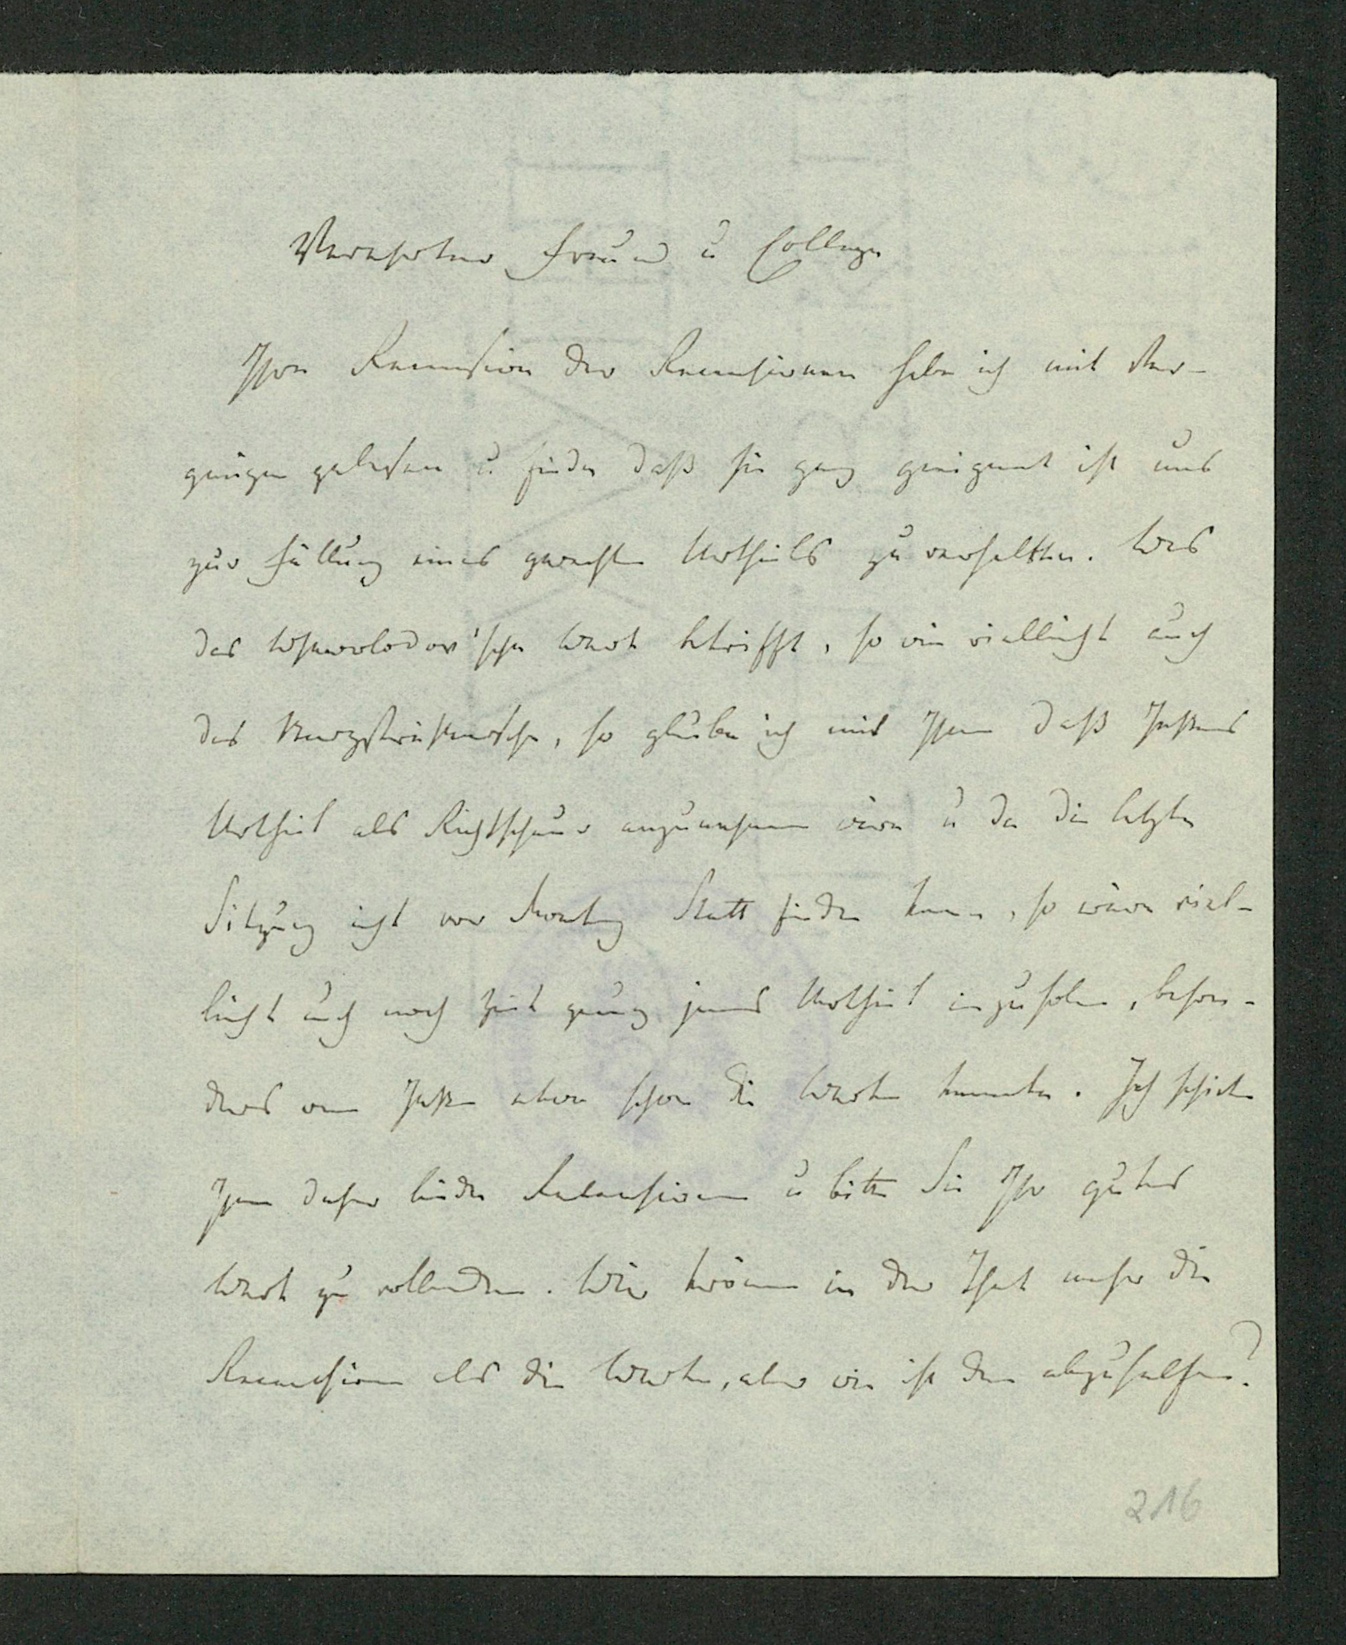 Verehrter Freund u College
Ihre Recension der Recensionen habe ich mit Ver-
gnügen gelesen u. finde daß sie ganz geeignet ist uns
zur Fällung eines gerechten Urtheils zu verhelfen. Was
das Wsewolodow'sche Werk betrifft, so wie vielleicht auch
das, so glaube ich mit Ihnen daß
Urtheil als Richtschnur anzunehmen wäre u da die letzte
Sitzung nicht vor Montag Statt finden kann, so wäre viel-
leicht auch noch Zeit genug jenes Urtheil einzuholen, beson-
ders wenn schon die Werke kannte. Ich schicke
Ihnen daher beide Recensionen u bitte Sie Ihr gutes
Werk zu vollenden. Wir krönen in der That mehr die
Recensionen als die Werke, aber wie ist dem abzuhelfen?
216